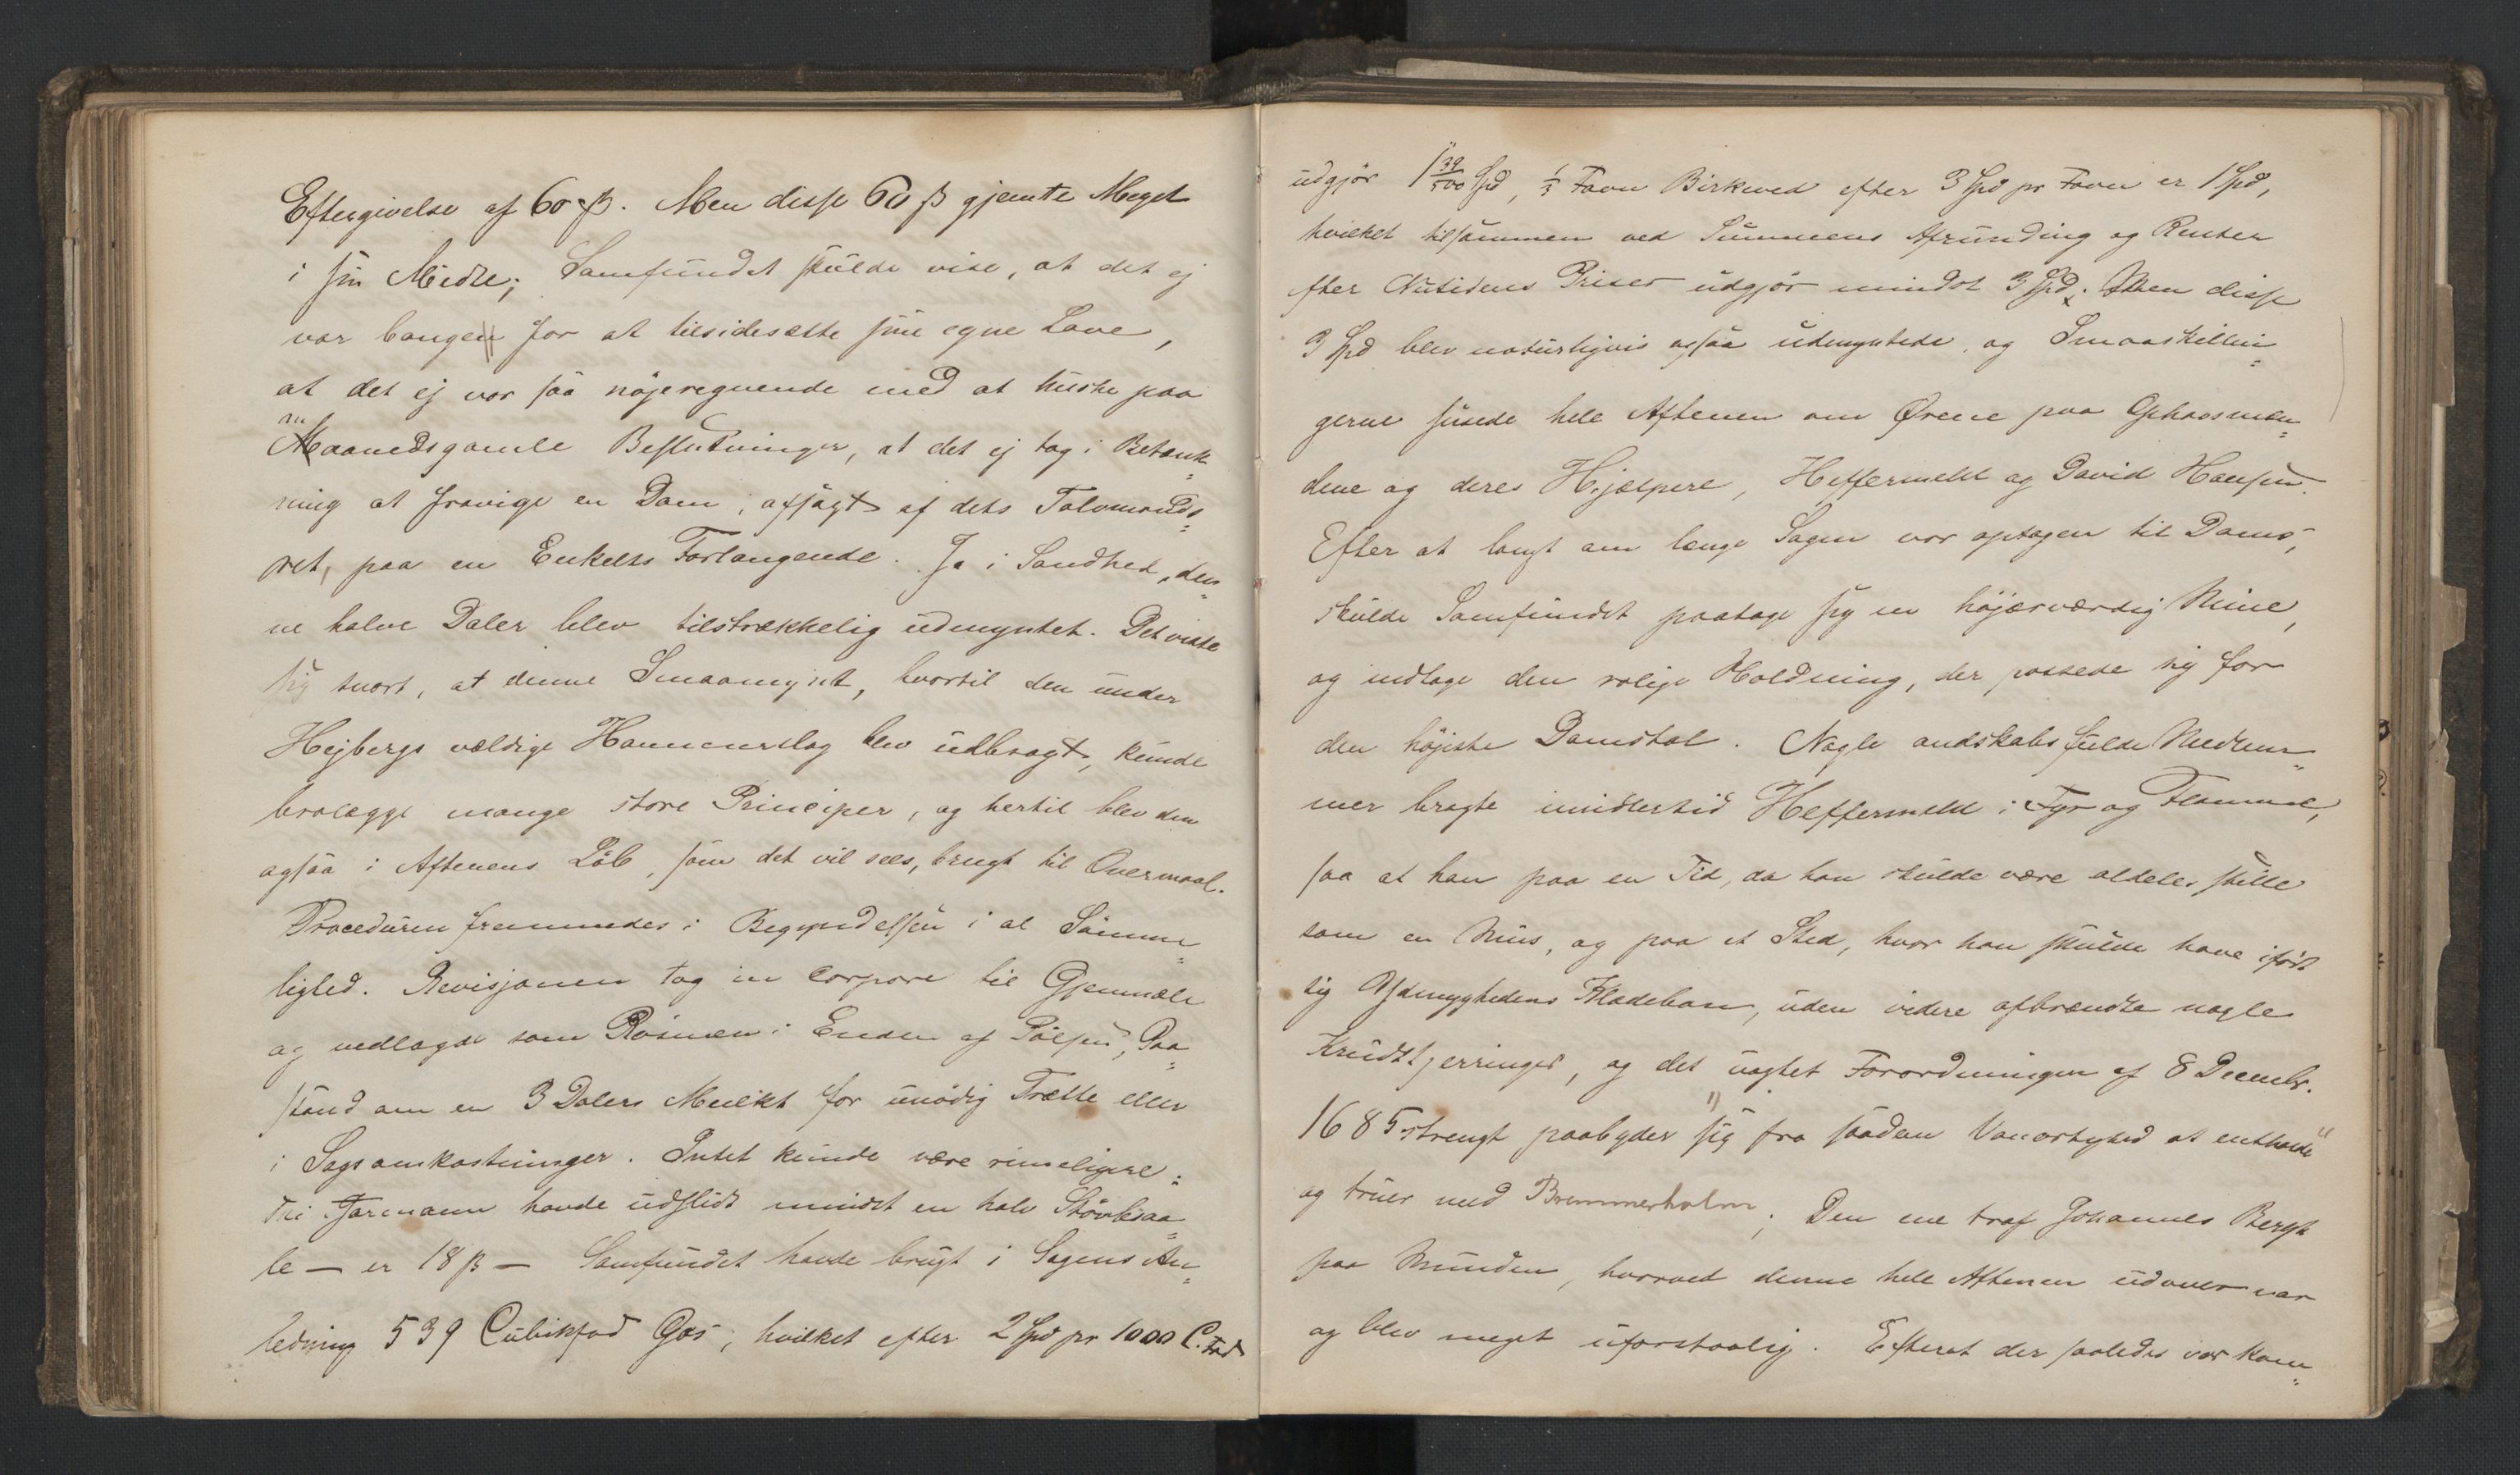 Eftergivelse af 60 ß. Men disse 60 ß gjemte Meget
i sin Midte; Samfundet skulde vise, at det ej
var bange for at tilsidesætte sine egne Love,
at det ej var saa nöjeregnende med at huske paa
maanedsgamle Beslutninger, at det ej tog i Betænk-
ning at fravige en Dom, afsagt af dets Tolvmands-
ret, paa en Enkelts Forlangende. Ja i Sandhed, den-
ne halve Daler blev tilstrækkelig udmyntet. Det viste
sig snart, at denne Smaamynt, hvortil den under
Hejbergs vældige Hammerslag blev udbragt, kunde
brolægge mange store Principer, og hertil blev den
ogsaa i Aftenens Löb, som det vil sees, brugt til Overmaal.
Proceduren fremmedes i Begyndelsen i al Sömme-
lighed. Revisjonen tog in corpore til Gjenmæle
og vedlagde som Rosinen i Enden af Pölsen, Paa-
stand om en 3 Dalers Mulkt for unödig Trætte eller
i Sagsomkostninger. Intet kunde være rimeligere:
Thi Jarmann havde udslidt mindst en halv Stövlesaa-
le — er 18 ß — Samfundet havde brugt i Sagens An-
ledning 539 Cubikfod Gas, hvilket efter 2 Spd pr 1000 C. Fod
udgjör 1 39/500 Spd, 1/3 Favn Birkeved efter 3 Spd pr Favn er 1 Spd,
hvilket tilsammen ved Summens Afrunding og Renter
efter Nutidens Priser udgjör mindst 3 Spd. Men disse
3 Spd blev naturligvis ogsaa udmyntede, og Smaaskillin-
gerne susede hele Aftenen om Ørene paa Ophavsmæn-
dene og deres Hjælpere, Heffermehl og David Hansen.
Efter at langt om længe Sagen var optagen til Doms,
skulde Samfundet paatage sig en höjærværdig Mine,
og indtage den rolige Holdning, der passede sig for
den höjeste Domstol. Nogle ondskabsfulde Medlem-
mer bragte imidlertid Heffermehl i Fyr og Flamme,
saa at han paa en Tid, da han skulde være aldeles stille
som en Mus, og paa et Sted, hvor han skulde have ifört
sig Ydmyghedens Klædebon, uden videre afbrændte nogle
Krudtkjerringer, og det uagtet Forordningen af 8 Decembr.
1685 strengt paabyder "sig fra saadan Vanartighed at entholde"
og truer med Bremmerholm; Den ene traf Johannes Bergh
paa Munden, hvorved denne hele Aftenen udover var
og blev meget uforstaalig. Efterat der saaledes var kom-